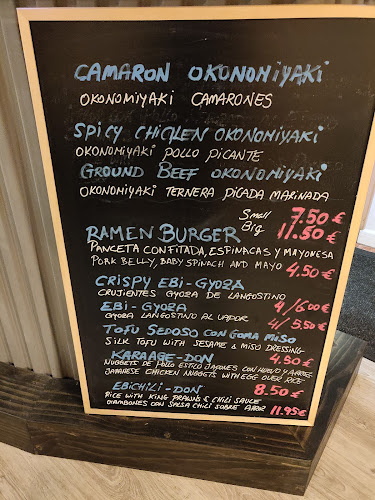 CAMARON OKONOMIYAKI
OKONOMIYAKI CAMARONES
SPICY CHICKEN OKONOMIYAKI
OKONOMIYAKI POLLO PICANTE
GROUND BEEF OKONOMIYAKI
OKONOMIYAKI TERNERA PICADA MARINADA
Small 7.50 €
Big 11.50 €
RAMEN BURGER
PANCETA CONFITADA, ESPINACAS Y MAYONESA
PORK BELLY, BABY SPINACH AND MAYO 4,50 €
CRISPY EBI-GYOZA
CRUJIENTES GYOZA DE LANGOSTINO
EBI-GYOZA 4/6.00 €
GYOZA LANGOSTINO AL VAPOR 4/5,50 €
TOFU SEDOSO CON GOMA MISO
SILK TOFU WITH SESAME & MISO DRESSING
KARAAGE-DON 4.50 €
NUGGETS DE POLLO ESTILO JAPONES CON HUEVO Y ARROZ
JAPANESE CHICKEN NUGGETS WITH EGG OVER RICE
EBICHILI-DON 8.50 €
RICE WITH KING PRAWNS & CHILI SAUCE
CON SALSA CHILI SOBRE 11.95 €